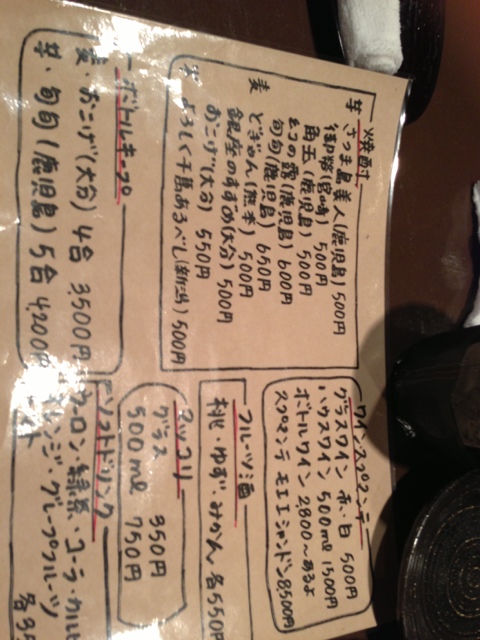 焼酎
芋 さつま島美人(鹿児島) 500円
御幣(宮崎) 500円
角玉(鹿児島) 500円
幻の露(鹿児島) 600円
旬旬(鹿児島) 650円
麦 どぎゃん(熊本) 500円
銀座のすずめ(大分) 500円
おこげ(大分) 550円
米 よろしく千萬あるべし(新潟) 500円
ボトルキープ
麦・おこげ(大分) 4合 3,500円
芋・旬旬(鹿児島) 5合 4,200円
ワイン・スプマンテ
グラスワイン 赤、白 500円
ハウスワイン 500ml 1500円
ボトルワイン 2,800〜あるよ
スプマンテ モエエシャンドン 8,500円
フルーツ酒
桃・ゆず・みかん 各550円
マッコリ
グラス 350円
500ml 750円
ソフトドリンク
ウーロン・緑茶、コーラ・カルピ
オレンジ・グレープフルーツ